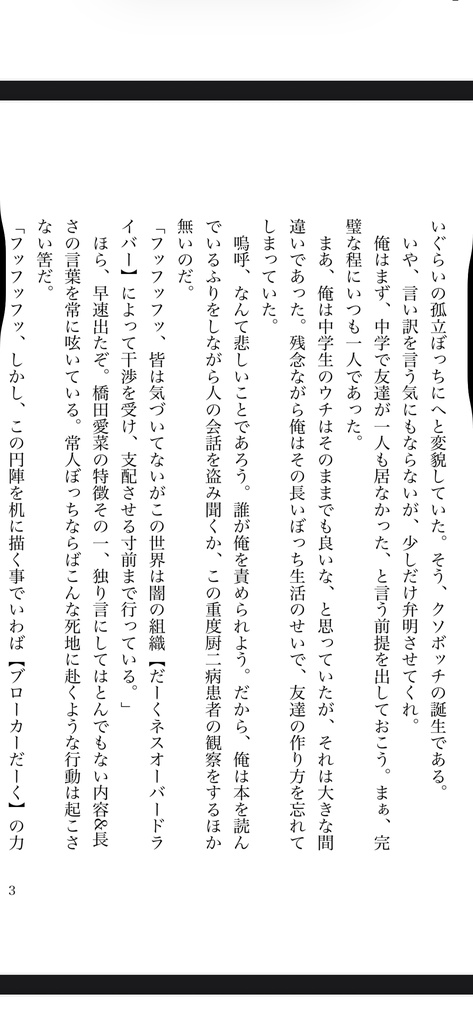 いぐらいの孤立ぼっちにへと変貌していた。そう、クソボッチの誕生である。
いや、言い訳を言う気にもならないが、少しだけ弁明させてくれ。
俺はまず、中学で友達が一人も居なかった、と言う前提を出しておこう。まぁ、完
璧な程にいつも一人であった。
まあ、俺は中学生のウチはそのままでも良いな、と思っていたが、それは大きな間
違いであった。残念ながら俺はその長いぼっち生活のせいで、友達の作り方を忘れて
しまっていた。
嗚呼、なんて悲しいことであろう。誰が俺を責められよう。だから、俺は本を読ん
でいるふりをしながら人の会話を盗み聞くか、この重度厨二病患者の観察をするほか
無いのだ。
「フッフッフッ、皆は気づいてないがこの世界は闇の組織【だーくネスオーバードラ
イバー】によって干渉を受け、支配させる寸前まで行っている。」
ほら、早速出たぞ。橋田愛菜の特徴その一、独り言にしてはとんでもない内容&長
さの言葉を常に呟いている。常人ぼっちならばこんな死地に赴くような行動は起こさ
ない筈だ。
「フッフッフッ、しかし、この円陣を机に描く事でいわば【ブローカーだーく】の力
3